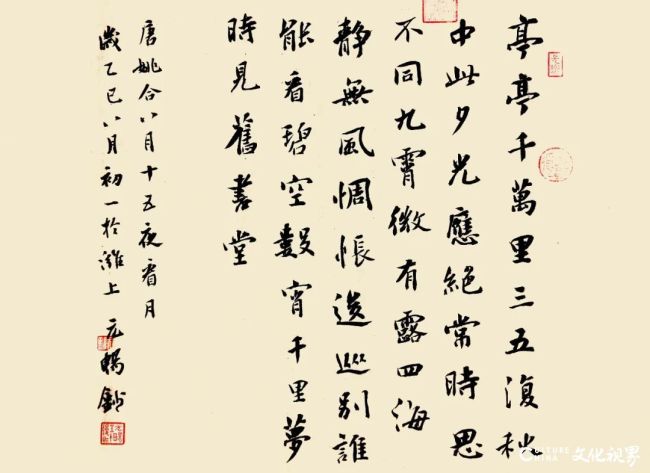 亭亭千萬里三五復秋
中此夕光應絕常時思
不同九霄微有露四海
靜無風惆悵逡巡別誰
能看碧空數宵千里夢
時見舊書堂
唐姚合八月十五夜看月
歲乙巳八月初一於濰上 元
CULTURE CHINA 文化视界